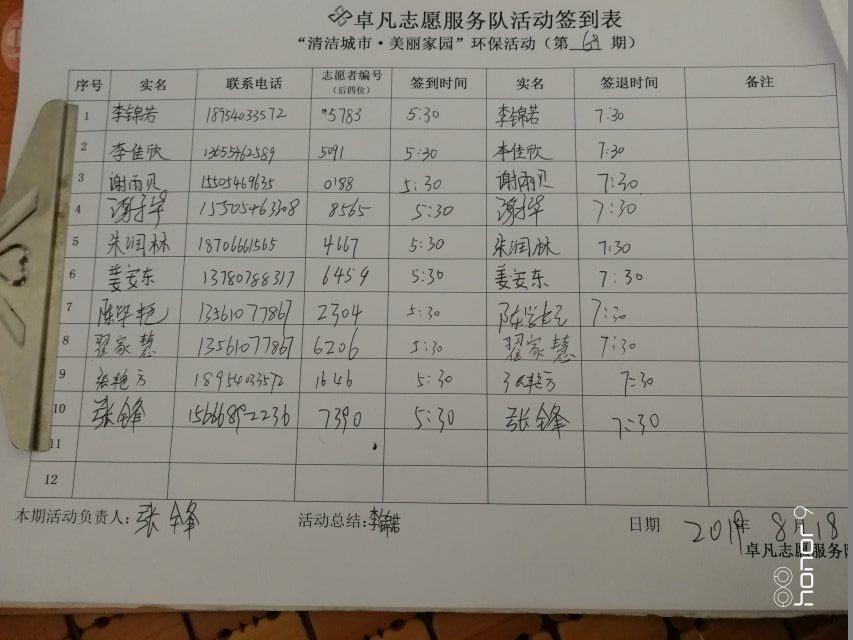 卓凡志愿服务队活动签到表
“清洁城市·美丽家园”环保活动（第 69 期）
序号 实名 联系电话 志愿者编号（后四位） 签到时间 实名 签退时间 备注
1 李锦若 18954033572 5783 5:30 李锦若 7:30
2 李佳欣 13655462589 5091 5:30 李佳欣 7:30
3 谢雨贝 15505469635 0188 5:30 谢雨贝 7:30
4 15505463308 8565 5:30 7:30
5 朱润林 18706661565 4667 5:30 朱润林 7:30
6 姜安东 13780788317 6459 5:30 姜安东 7:30
7 陈学艳 13561077867 2304 5:30 7:30
8 翟家慧 13561077867 6206 5:30 翟家慧 7:30
9 张艳方 18954033572 1646 5:30 张艳方 7:30
10 张锋 7390 5:30 张锋 7:30
11
12
本期活动负责人：张锋 活动总结：李锦若 日期 2019年8月18
卓凡志愿服务队
honor9